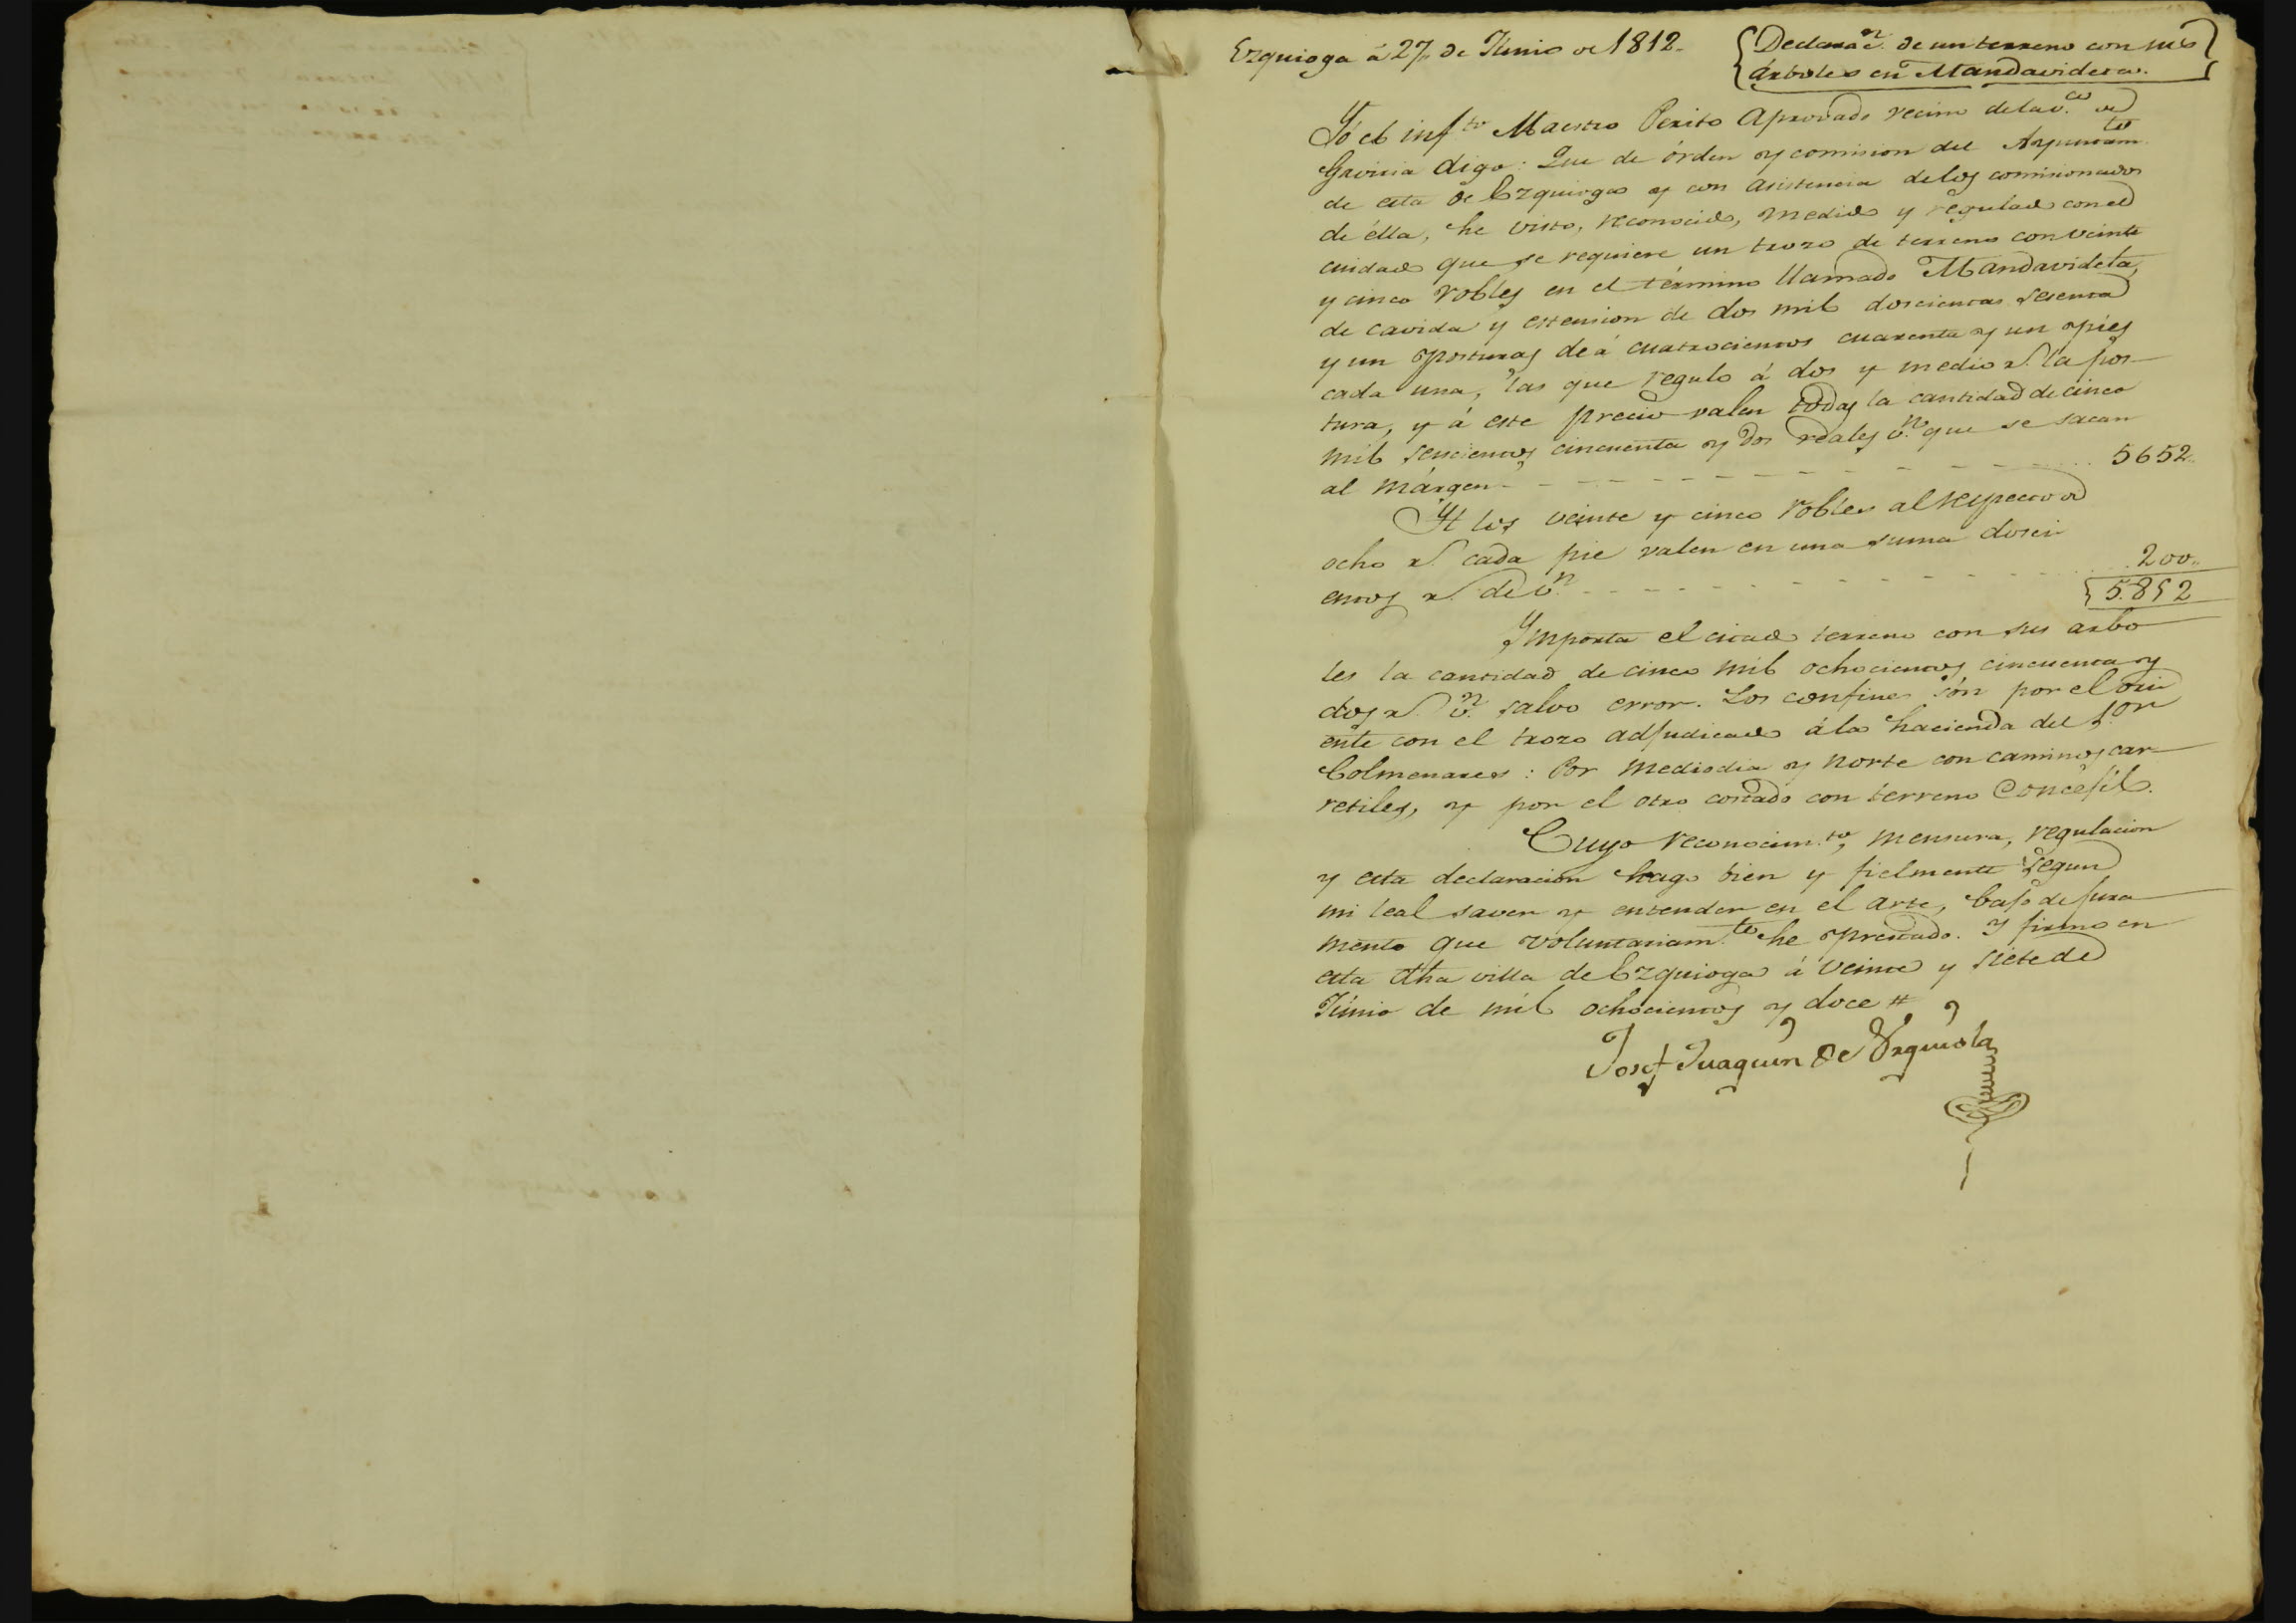 Ezquioga á 27,, de Júnio de 1812.
Declarac.n de un terreno con sus
árboles en Mandavideta.
Yó el inf.to Maestro Perito Aprovado vecino de la v.a de
Gaviria digo: Que de órden y comision del Ayuntam.to
de esta de Ezquioga y con asistencia de los comisionados
de élla, he visto, reconocido, medido y regulado con el
cuidado que se requiere un trozo de terreno con veinte
y cinco robles en el término llamado Mandavideta,
de cavida y estension de dos mil doscientas sesenta
y un posturas de á cuatrocientos cuarenta y un pies
cada una, las que regulo á dos y medio r.s la pos-
tura, y á este precio valen todas la cantidad de cinco
mil seiscientos cincuenta y dos reales v.n que se sacan
al márgen - - - 5652..
Yt los veinte y cinco robles al respecto de
ocho r.s cada pie valen en una suma dosci-
entos r.s de v.n - - - 200..
5.852
Ymporta el citado terreno con sus arbo-
les la cantidad de cinco mil ochocientos cincuenta y
dos r.s v.n salvo error. Los confines són por el ori-
ente con el trozo adjudicado á la hacienda del S.or
Colmenares: Por mediodia y norte con caminos car-
retiles, y por el otro costado con terreno Concejil.
Cuyo reconocim.to, mensura, regulacion
y esta declaracion hago bien y fielmente segun
mi leal saver y entender en el arte, bajo de jura-
mento que voluntariam.te he prestado. Y firmo en
esta dha villa de Ezquioga á veinte y siete de
Júnio de mil ochocientos y doce #
Josef Juaquin de Urquiola